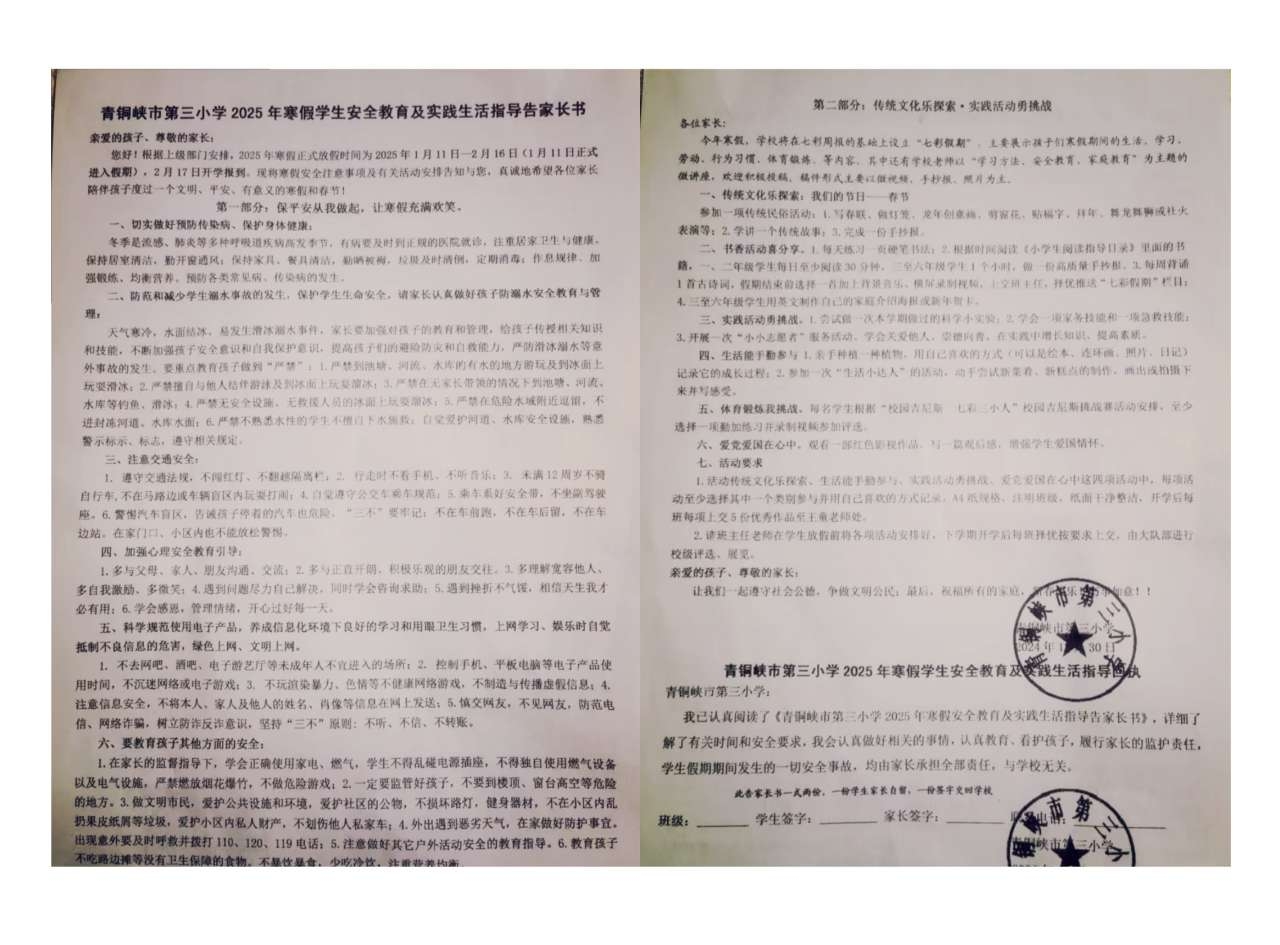 青铜峡市第三小学 2025 年寒假学生安全教育及实践生活指导告家长书
亲爱的孩子、尊敬的家长：
您好！根据上级部门安排，2025 年寒假正式放假时间为 2025 年 1 月 11 日—2 月 16 日（1 月 11 日正式
进入假期），2 月 17 日开学报到。现将寒假安全注意事项及有关活动安排告知与您，真诚地希望各位家长
陪伴孩子度过一个文明、平安、有意义的寒假和春节！
第一部分：保平安从我做起，让寒假充满欢笑。
一、切实做好预防传染病、保护身体健康：
冬季是流感、肺炎等多种呼吸道疾病高发季节，有病要及时到正规的医院就诊，注重居家卫生与健康，
保持居室清洁，勤开窗通风；保持家具、餐具清洁，勤晒被褥，垃圾及时清倒，定期消毒；作息规律、加
强锻炼、均衡营养。预防各类常见病、传染病的发生。
二、防范和减少学生溺水事故的发生，保护学生生命安全，请家长认真做好孩子防溺水安全教育与管
理：
天气寒冷，水面结冰，易发生滑冰溺水事件，家长要加强对孩子的教育和管理，给孩子传授相关知识
和技能，不断加强孩子安全意识和自我保护意识，提高孩子们的避险防灾和自救能力，严防滑冰溺水等意
外事故的发生。要重点教育孩子做到“严禁”：1.严禁到池塘、河流、水库的有水的地方游玩及到冰面上
玩耍滑冰；2.严禁擅自与他人结伴游泳及到冰面上玩耍溜冰；3.严禁在无家长带领的情况下到池塘、河流、
水库等钓鱼、滑冰；4.严禁无安全设施、无救援人员的冰面上玩耍溜冰；5.严禁在危险水域附近逗留，不
进封冻河道、水库水面；6.严禁不熟悉水性的学生不擅自下水施救；自觉爱护河道、水库安全设施，熟悉
警示标示、标志，遵守相关规定。
三、注意交通安全：
1. 遵守交通法规，不闯红灯、不翻越隔离栏；2. 行走时不看手机、不听音乐；3. 未满 12 周岁不骑
自行车，不在马路边或车辆盲区内玩耍打闹；4.自觉遵守公交车乘车规范；5.乘车系好安全带，不坐副驾驶
座。6.警惕汽车盲区，告诫孩子停着的汽车也危险。“三不”要牢记：不在车前跑，不在车后留，不在车
边站。在家门口、小区内也不能放松警惕。
四、加强心理安全教育引导：
1.多与父母、家人、朋友沟通、交流；2.多与正直开朗、积极乐观的朋友交往。3.多理解宽容他人、
多自我激励、多微笑；4.遇到问题尽力自己解决，同时学会咨询求助；5.遇到挫折不气馁，相信天生我才
必有用；6.学会感恩，管理情绪，开心过好每一天。
五、科学规范使用电子产品，养成信息化环境下良好的学习和用眼卫生习惯，上网学习、娱乐时自觉
抵制不良信息的危害，绿色上网、文明上网。
1. 不去网吧、酒吧、电子游艺厅等未成年人不宜进入的场所；2. 控制手机、平板电脑等电子产品使
用时间，不沉迷网络或电子游戏；3. 不玩渲染暴力、色情等不健康网络游戏，不制造与传播虚假信息；4.
注意信息安全，不将本人、家人及他人的姓名、肖像等信息在网上发送；5.慎交网友，不见网友，防范电
信、网络诈骗，树立防诈反诈意识，坚持“三不”原则：不听、不信、不转账。
六、要教育孩子其他方面的安全：
1.在家长的监督指导下，学会正确使用家电、燃气，学生不得乱碰电源插座，不得独自使用燃气设备
以及电气设施，严禁燃放烟花爆竹，不做危险游戏；2.一定要监管好孩子，不要到楼顶、窗台高空等危险
的地方。3.做文明市民，爱护公共设施和环境，爱护社区的公物，不损坏路灯，健身器材，不在小区内乱
扔果皮纸屑等垃圾，爱护小区内私人财产，不划伤他人私家车；4.外出遇到恶劣天气，在家做好防护事宜。
出现意外要及时呼救并拨打 110、120、119 电话；5.注意做好其它户外活动安全的教育指导。6.教育孩子
不吃路边摊等没有卫生保障的食物，不暴饮暴食，少吃冷饮，注重营养均衡。
第二部分：传统文化乐探索·实践活动勇挑战
各位家长：
今年寒假，学校将在七彩周报的基础上设立“七彩假期”，主要展示孩子们寒假期间的生活、学习、
劳动、行为习惯、体育锻炼、等内容，其中还有学校老师以“学习方法、安全教育、家庭教育”为主题的
微讲座，欢迎积极投稿，稿件形式主要以微视频、手抄报、照片为主。
一、传统文化乐探索：我们的节日——春节
参加一项传统民俗活动：1.写春联、做灯笼、龙年创意画、剪窗花、贴福字、拜年、舞龙舞狮或社火
表演等；2.学讲一个传统故事；3.完成一份手抄报。
二、书香活动喜分享。1.每天练习一页硬笔书法；2.根据时间阅读《小学生阅读指导目录》里面的书
籍，一、二年级学生每日至少阅读 30 分钟，三至六年级学生 1 个小时，做一份高质量手抄报。3.每周背诵
1 首古诗词，假期结束前选择一首加上背景音乐、横屏录制视频，上交班主任，择优推送“七彩假期”栏目；
4.三至六年级学生用英文制作自己的家庭介绍海报或新年贺卡。
三、实践活动勇挑战。1.尝试做一次本学期做过的科学小实验；2.学会一项家务技能和一项急救技能；
3.开展一次“小小志愿者”服务活动，学会关爱他人、崇德向善，在实践中增长知识、提高素质。
四、生活能手勤参与 1.亲手种植一种植物，用自己喜欢的方式（可以是绘本、连环画、照片、日记）
记录它的成长过程；2.参加一次“生活小达人”的活动，动手尝试新菜肴、新糕点的制作，画出或拍摄下
来并写感受。
五、体育锻炼我挑战。每名学生根据“校园吉尼斯 七彩三小人”校园吉尼斯挑战赛活动安排，至少
选择一项勤加练习并录制视频参加评选。
六、爱党爱国在心中。观看一部红色影视作品，写一篇观后感，增强学生爱国情怀。
七、活动要求
1.活动传统文化乐探索、生活能手勤参与、实践活动勇挑战、爱党爱国在心中这四项活动中，每项活
动至少选择其中一个类别参与并用自己喜欢的方式记录，A4 纸规格、注明班级，纸面干净整洁，开学后每
班每项上交 5 份优秀作品至王童老师处。
2.请班主任老师在学生放假前将各项活动安排好，下学期开学后每班择优按要求上交，由大队部进行
校级评选、展览。
亲爱的孩子、尊敬的家长：
让我们一起遵守社会公德，争做文明公民；最后，祝福所有的家庭，新春快乐！万事如意！！
青铜峡市第三小学
2024 年 1 月 30 日
青铜峡市第三小学
青铜峡市第三小学 2025 年寒假学生安全教育及实践生活指导回执
青铜峡市第三小学：
我已认真阅读了《青铜峡市第三小学 2025 年寒假安全教育及实践生活指导告家长书》，详细了
解了有关时间和安全要求，我会认真做好相关的事情，认真教育、看护孩子，履行家长的监护责任，
学生假期期间发生的一切安全事故，均由家长承担全部责任，与学校无关。
此告家长书一式两份，一份学生家长自留，一份签字交回学校
班级：________ 学生签字：________ 家长签字：________ 联系电话：
铜峡市第三小
铜峡市第三小学